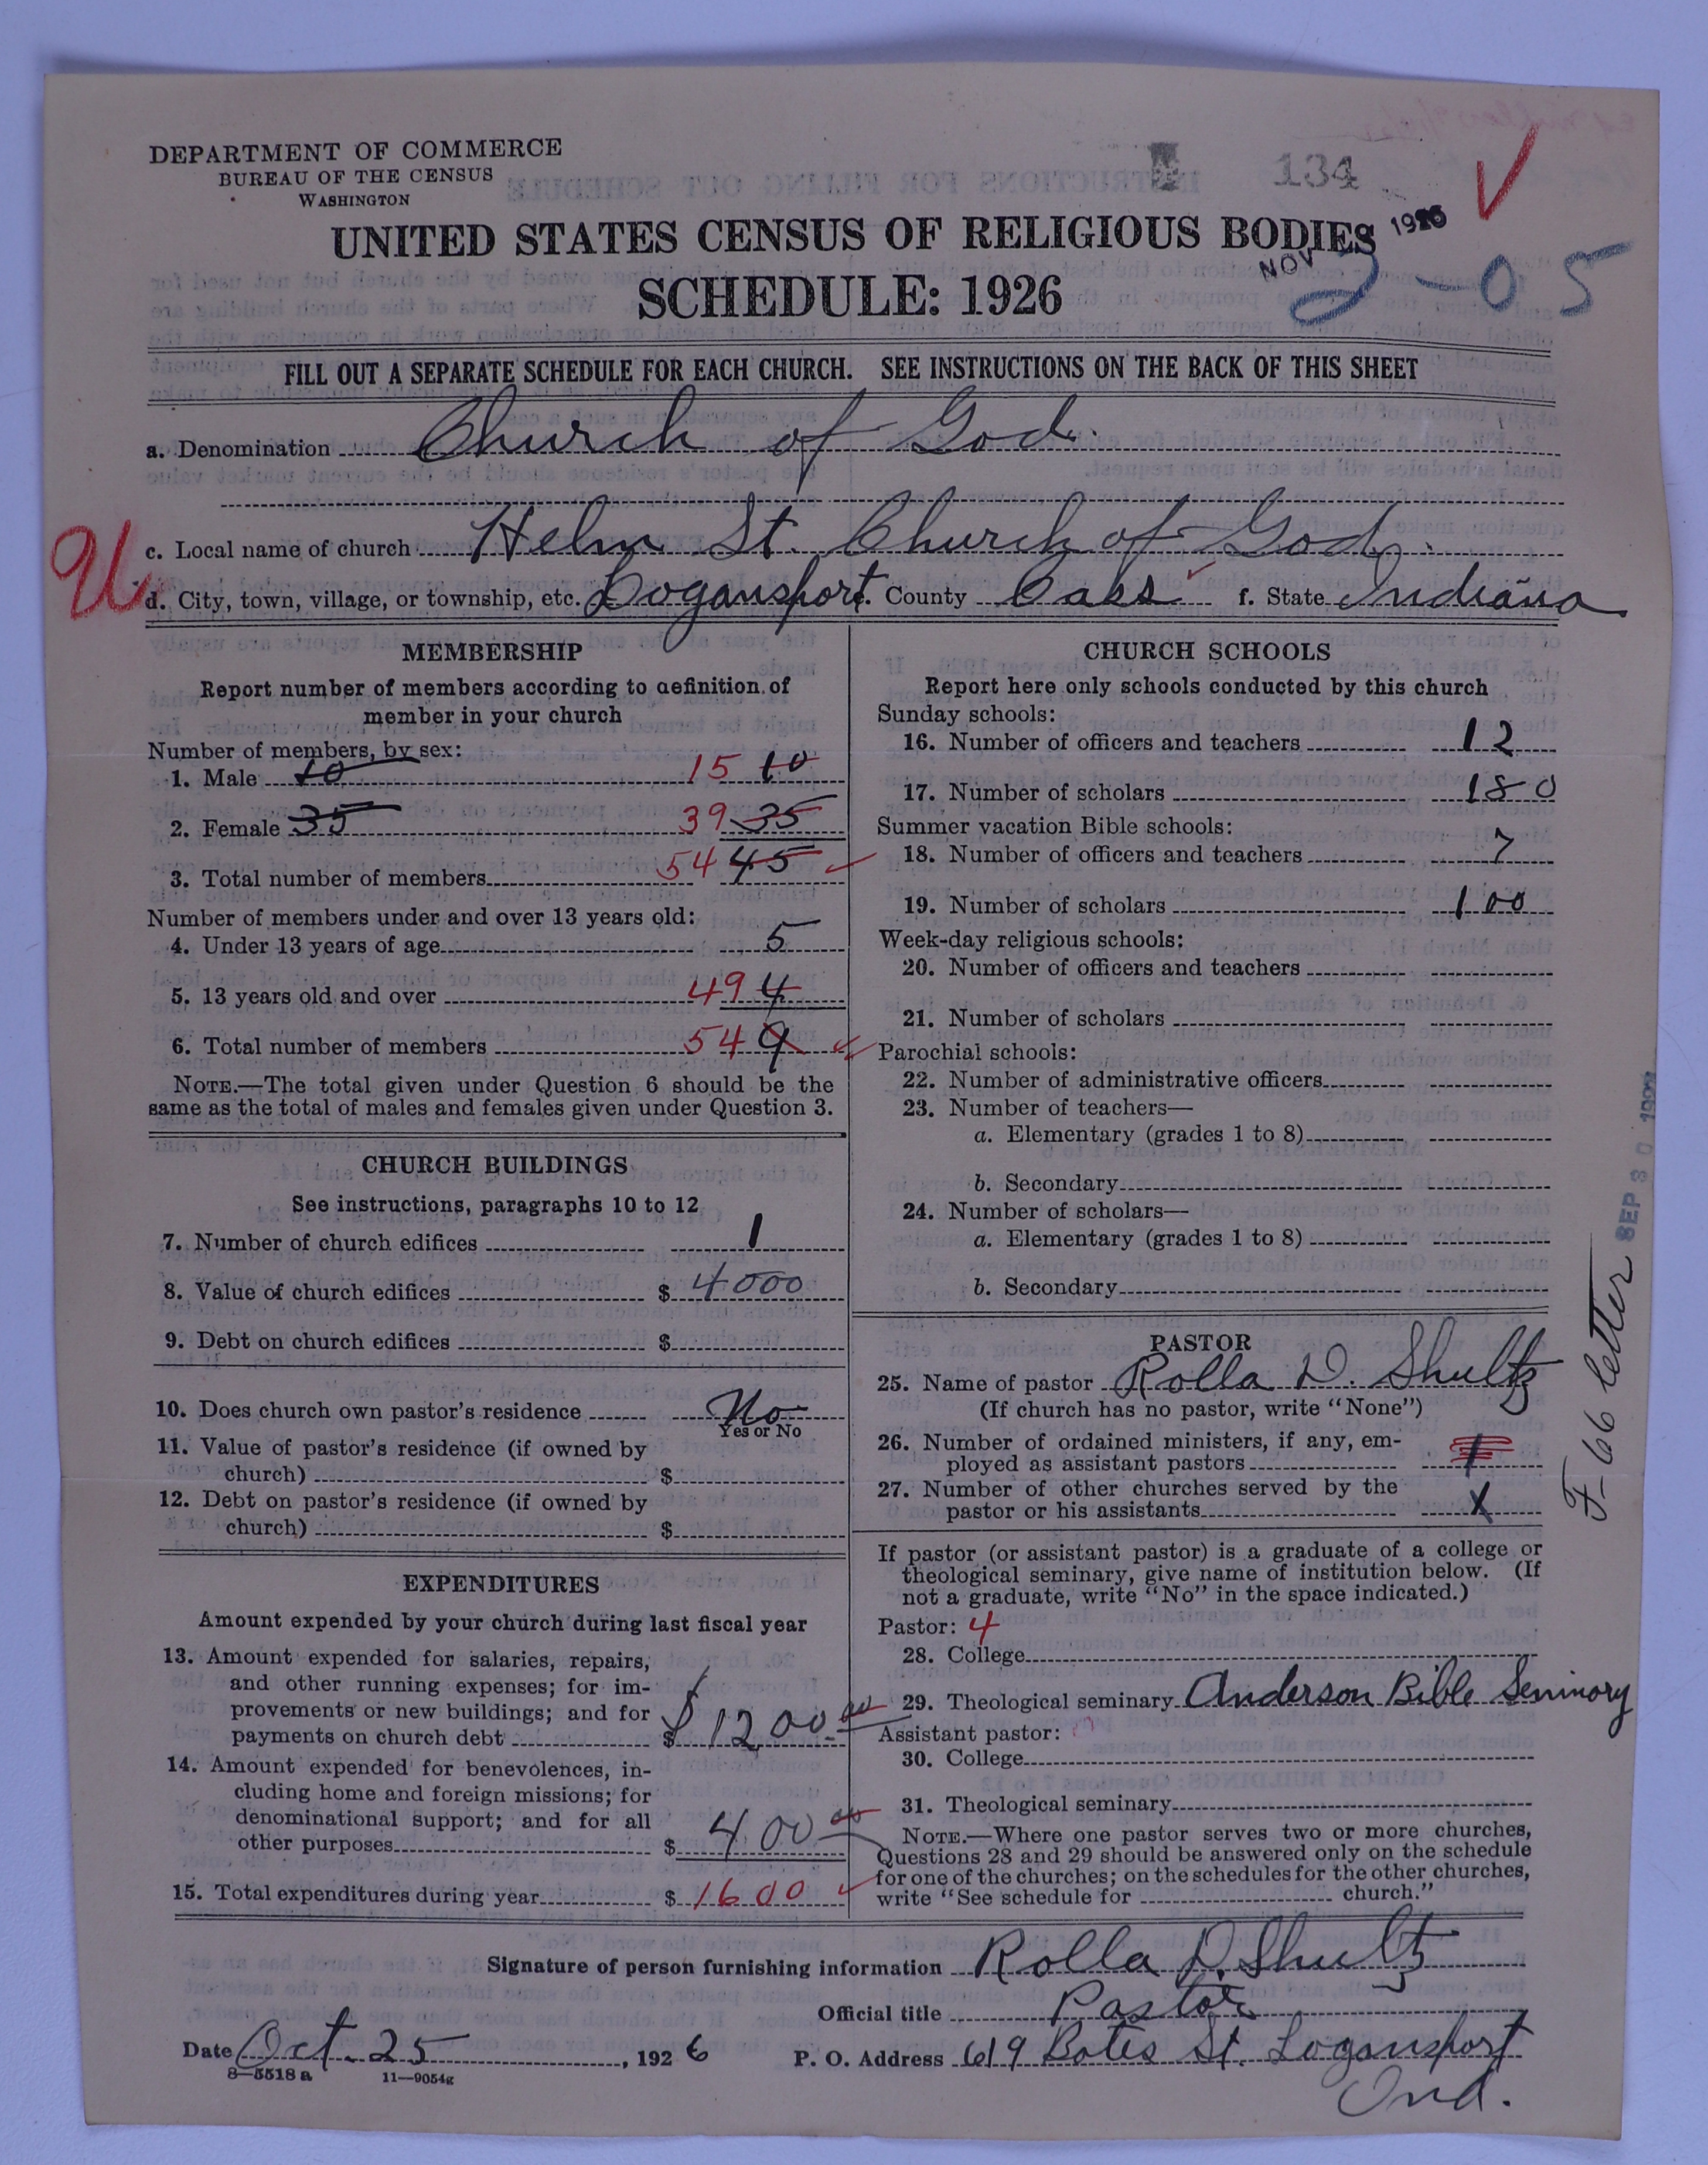 134
DEPARTMENT OF COMMERCE
BUREAU OF THE CENSUS
WASHINGTON
UNITED STATES CENSUS OF RELIGIOUS BODIES
1926
NOV
2-05
SCHEDULE: 1926
FILL OUT A SEPARATE SCHEDULE FOR EACH CHURCH. SEE INSTRUCTIONS ON THE BACK OF THIS SHEET
a. Denomination Church of God.
c. Local name of church Helm St. Church of God.
U
d. City, town, village, or township, etc. Logansport. County Cass f. State Indiana
MEMBERSHIP
Report number of members according to definition of
member in your church
Number of members, by sex:
1. Male 10 15 10
2. Female 35 39 35
3. Total number of members 54 45
Number of members under and over 13 years old:
4. Under 13 years of age 5
5. 13 years old and over 49 4
6. Total number of members 54 9
NOTE.—The total given under Question 6 should be the
same as the total of males and females given under Question 3.
CHURCH BUILDINGS
See instructions, paragraphs 10 to 12
7. Number of church edifices 1
8. Value of church edifices $ 4000
9. Debt on church edifices $
10. Does church own pastor's residence No
Yes or No
11. Value of pastor's residence (if owned by
church) $
12. Debt on pastor's residence (if owned by
church) $
EXPENDITURES
Amount expended by your church during last fiscal year
13. Amount expended for salaries, repairs,
and other running expenses; for im-
provements or new buildings; and for
payments on church debt $ $1200.00
14. Amount expended for benevolences, in-
cluding home and foreign missions; for
denominational support; and for all
other purposes $ 400 00
15. Total expenditures during year $ 1600
CHURCH SCHOOLS
Report here only schools conducted by this church
Sunday schools:
16. Number of officers and teachers 12
17. Number of scholars 180
Summer vacation Bible schools:
18. Number of officers and teachers 7
19. Number of scholars 100
Week-day religious schools:
20. Number of officers and teachers
21. Number of scholars
Parochial schools:
22. Number of administrative officers
23. Number of teachers—
a. Elementary (grades 1 to 8)
b. Secondary
24. Number of scholars—
a. Elementary (grades 1 to 8)
b. Secondary
PASTOR
25. Name of pastor Rolla D. Shultz
(If church has no pastor, write "None")
26. Number of ordained ministers, if any, em-
ployed as assistant pastors 1
27. Number of other churches served by the
pastor or his assistants X
If pastor (or assistant pastor) is a graduate of a college or
theological seminary, give name of institution below. (If
not a graduate, write "No" in the space indicated.)
Pastor: 4
28. College
29. Theological seminary Anderson Bible Seminory
Assistant pastor:
30. College
31. Theological seminary
NOTE.—Where one pastor serves two or more churches,
Questions 28 and 29 should be answered only on the schedule
for one of the churches; on the schedules for the other churches,
write "See schedule for church."
F-66 letter
SEP 30
Signature of person furnishing information Rolla D. Shultz
Official title Pastor
Date Oct. 25, 1926 P. O. Address 619 Bates St. Logansport
Ind.
8—5518 a 11—9054g